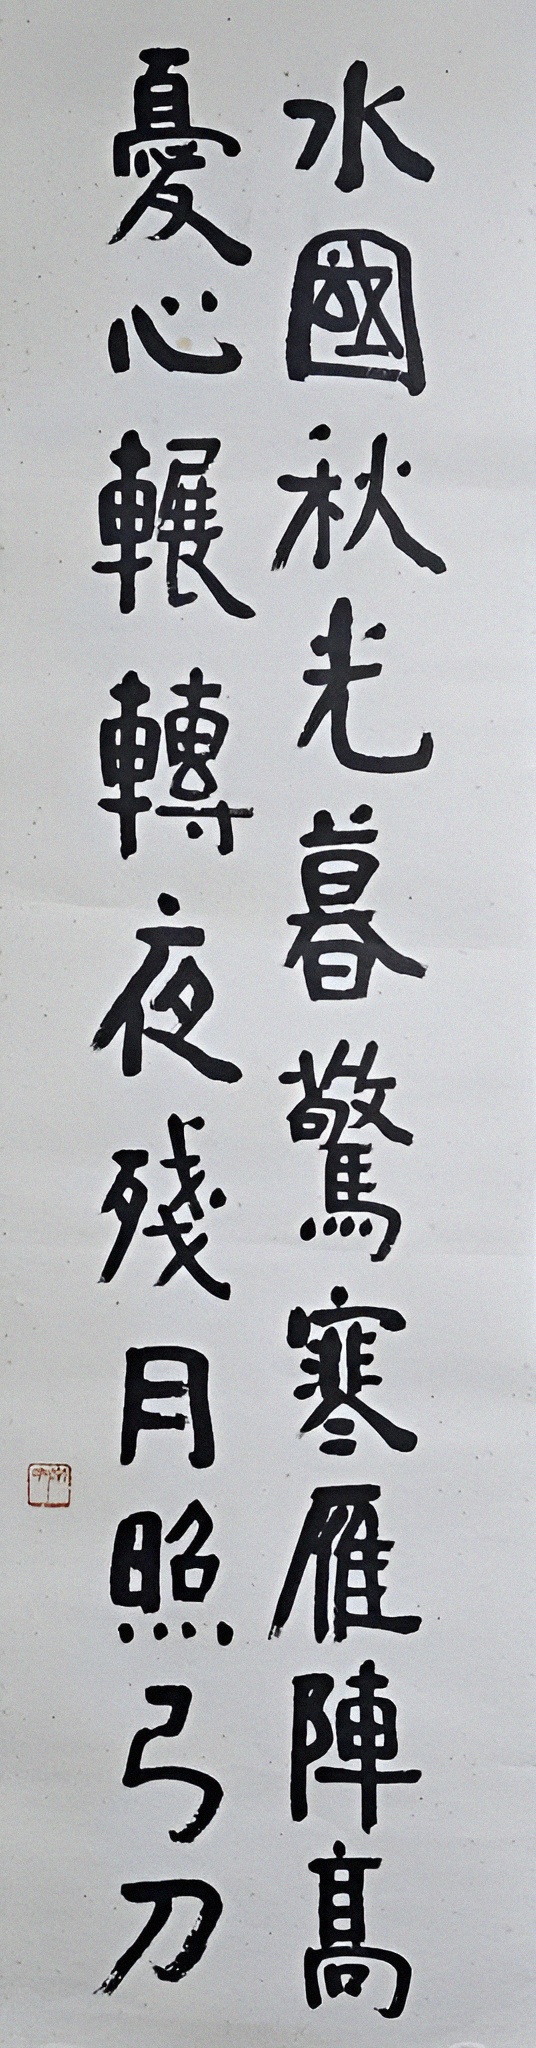 水國秋光暮驚寒雁陣高
憂心輾轉夜殘月照弓刀